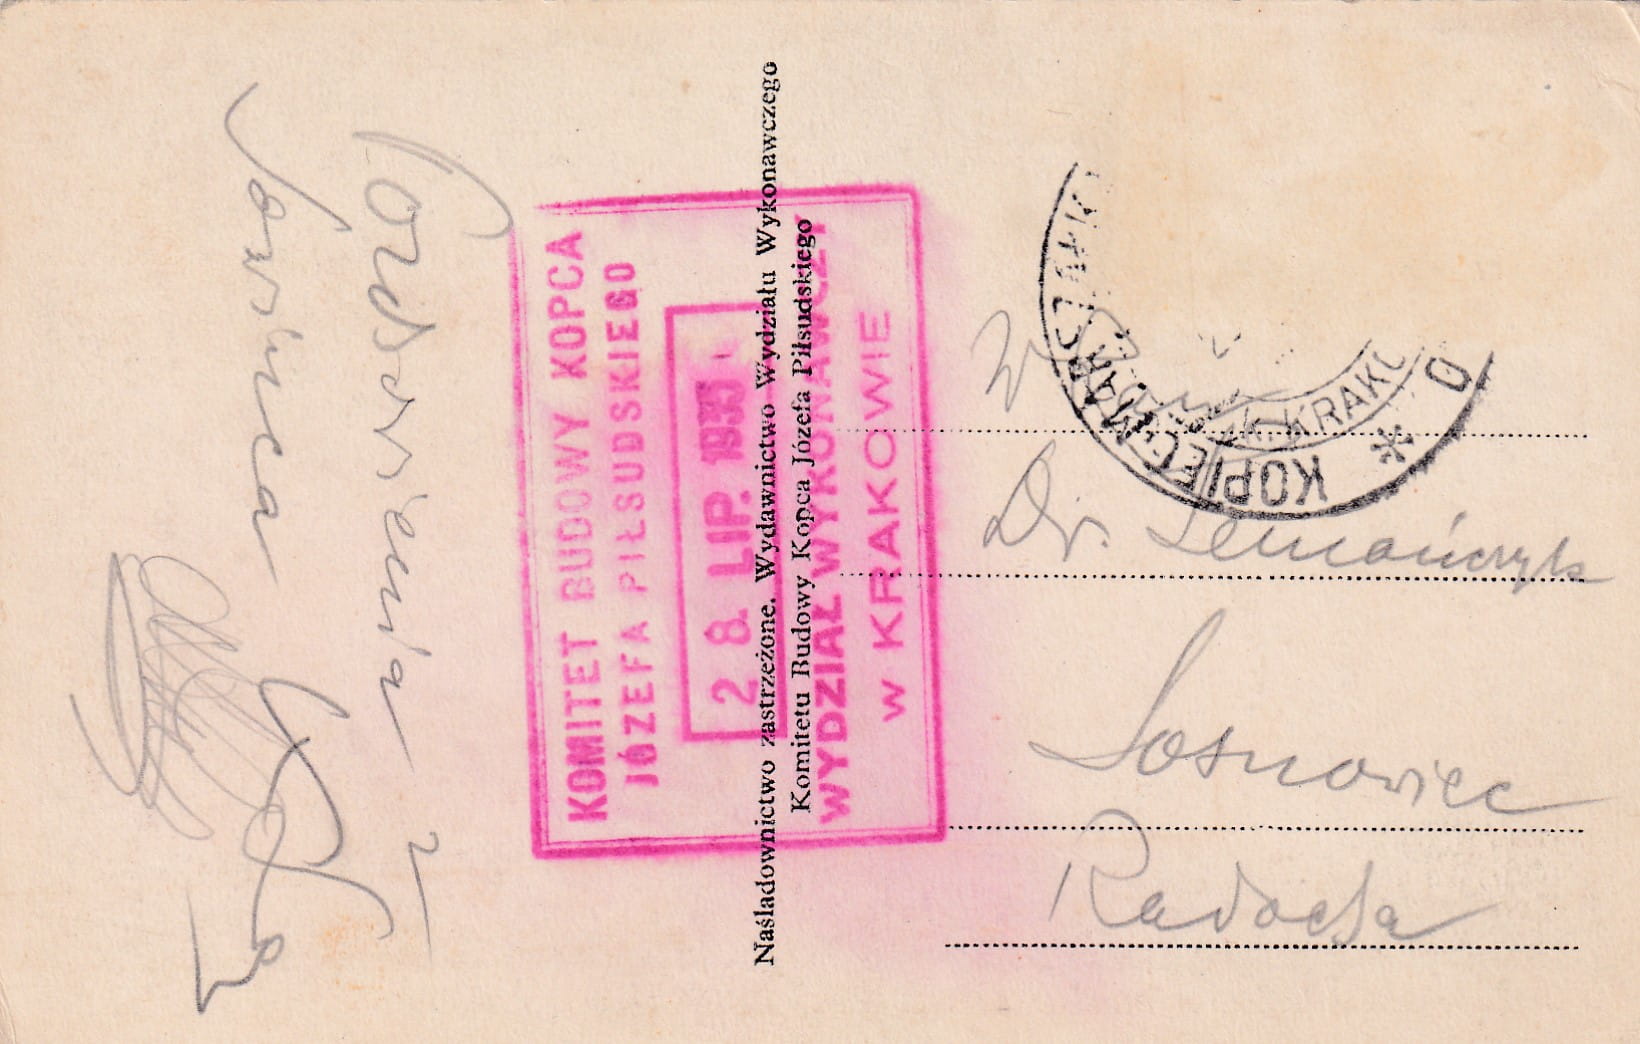 Pozdrowienia z
Sowińca
KOMITET BUDOWY KOPCA
JÓZEFA PIŁSUDSKIEGO
28. LIP. 1935
WYDZIAŁ WYKONAWCZY
W KRAKOWIE
Naśladownictwo zastrzeżone. Wydawnictwo Wydziału Wykonawczego
Komitetu Budowy Kopca Józefa Piłsudskiego
KOPIEC MARSZAŁKA
KRAK
W. Pani
Dr. Semańczyk
Sosnowiec
Radocha